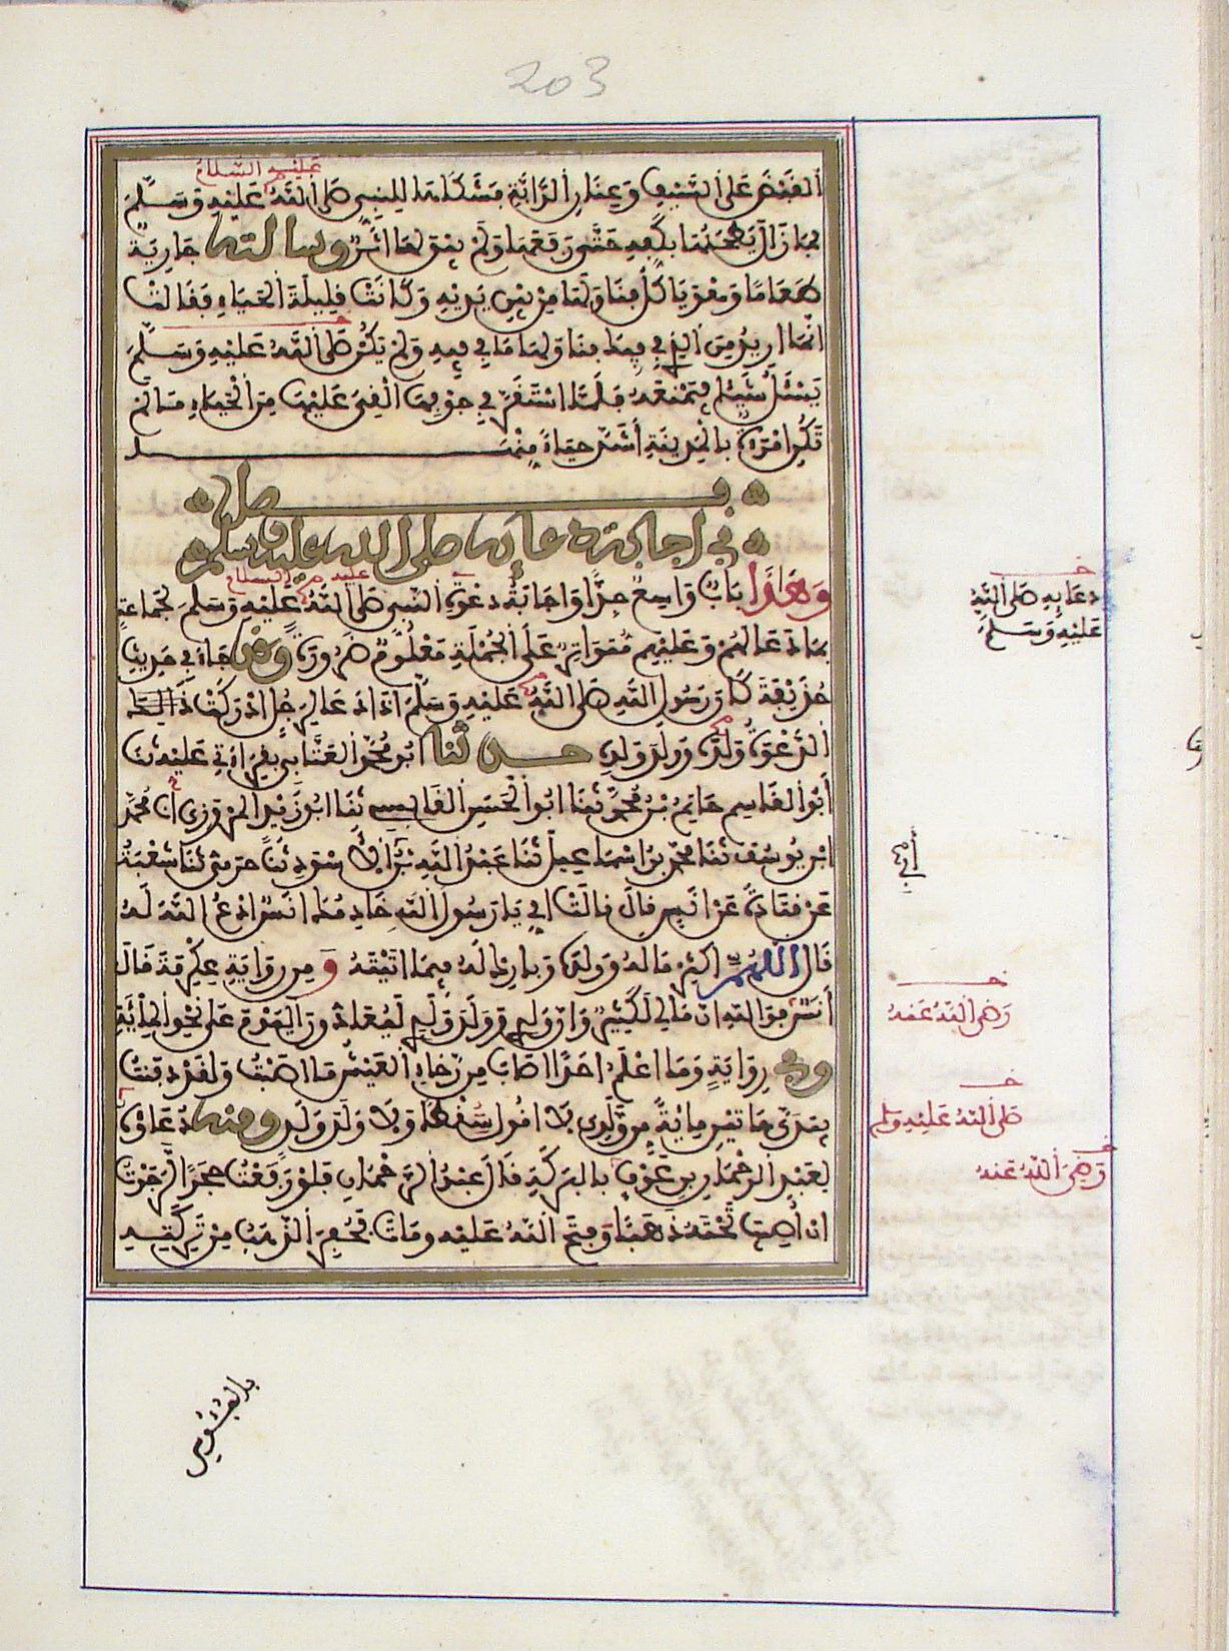 203
عليه السلام
القبض على السيف وعنان الدابة فشكاها للنبي صلى الله عليه وسلم
فما زال يطحنها بكفه حتى رفعها ولم يبق لها اثر وسالته جارية
طعاما وهو ياكل فناولها من بين يديه وكانت قليلة الحياء فقالت
انما اريد من الذي في فيك فناولها ما في فيه ولم يكن صلى الله عليه وسلم
يسئل شيئا فيمنعه فلما استقر في جوفها القي عليها من الحياء ما لم
تكن امرءة بالمدينة أشد حياء منها
فصل
في اجابة دعائه صلى الله عليه وسلم
عليه السلام
وهذا باب واسع جدا واجابة دعوة النبي صلى الله عليه وسلم لجماعة
بما دعا لهم وعليهم متواتر على الجملة معلوم ضرورة وقد جاء في حديث
حذيفة كان رسول الله صلى الله عليه وسلم اذا دعا لرجل ادركت
الدعوة ولده وولد ولده حدثنا ابو محمد العتابي بقراءتي عليه ثنا
أبو القاسم حاتم بن محمد ثنا ابو الحسن القابسي ثنا ابو زيد المروزي ان محمد
ابن يوسف ثنا محمد بن اسماعيل ثنا عبد الله بن أبي الاسود ثنا حرمي ثنا شعبة
عن قتادة عن انس قال قالت امي يا رسول الله خادمك انس ادع الله له
قال اللهم اكثر ماله وولده وبارك له فيما اتيته ومن رواية عكرمة قال
أنس فوالله ان مالي لكثير وان ولدي وولد ولدي ليعادون اليوم على نحو الماية
وفي رواية وما اعلم احدا اصاب من رخاء العيش ما اصبت ولقد دفنت
بيدي هاتين ماية من ولدي لا اقول سقطا ولا ولد ولد ومنه دعاؤه
لعبد الرحمان بن عوف بالبركة قال عبد الرحمان فلو رفعت حجرا لرجوت
ان أصيب تحته ذهبا وفتح الله عليه ومات فحفر الذهب من تركته
دعايه صلى الله
عليه وسلم
أبي
رضى الله عنه
صلى الله عليه وسلم
رضي الله عنه
بالفؤوس